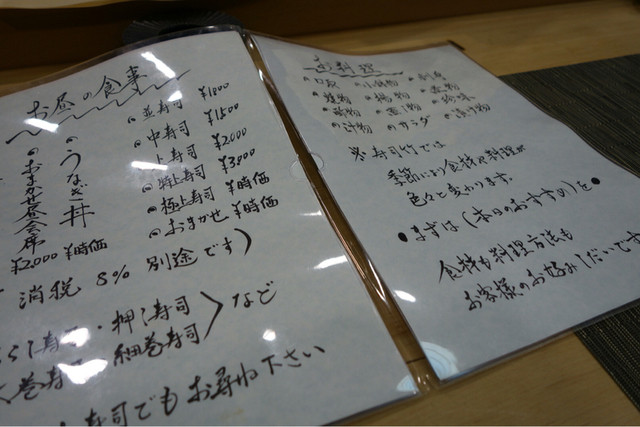 お昼の食事
並寿司 ¥1000
中寿司 ¥1500
上寿司 ¥2000
特上寿司 ¥3000
極上寿司 ¥時価
おまかせ ¥時価
うなぎ丼
おまかせ昼会席
¥2,000 ¥時価
消費税 8% 別途です)
らし寿司・押し寿司
巻寿司 細巻寿司 など
寿司でもお尋ね下さい
サラダ
※寿司竹では
季節により食材や料理が
色々と変わります。
●まずは(本日のおすすめ)を●
食材も料理方法も
お客様のお好みしだいです